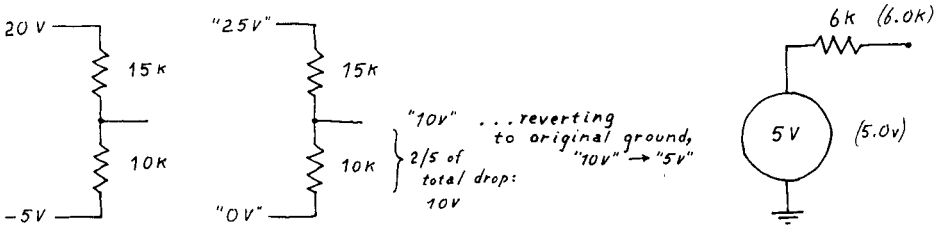 20V
15K
10K
-5V
"25V"
15K
"10V" ...reverting
to original ground,
"10V" → "5V"
10K
2/5 of
total drop:
10V
"0V"
6K (6.0K)
5V
(5.0V)